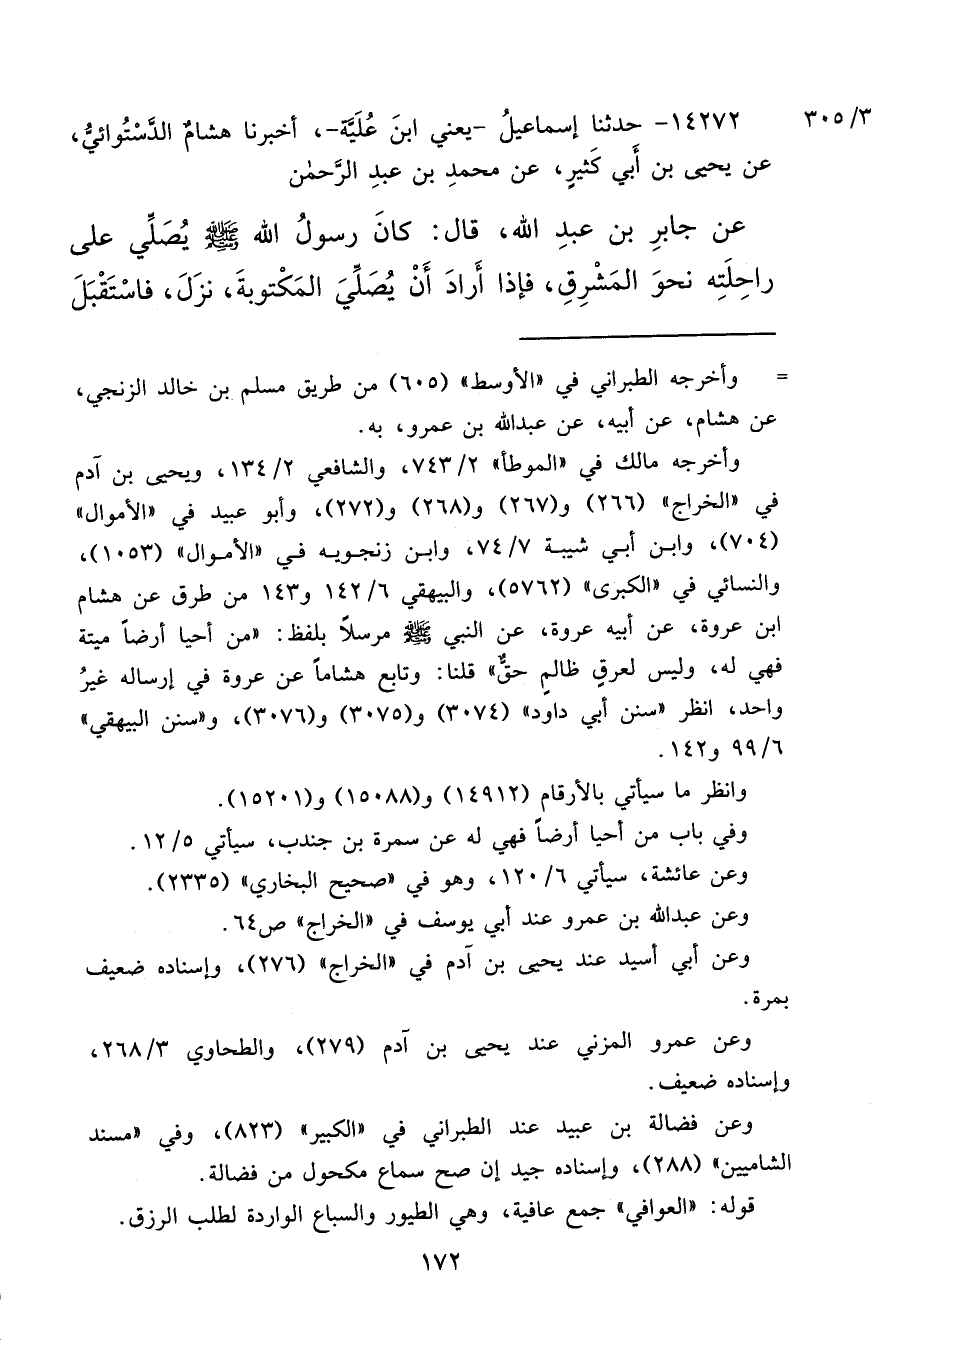 ٣٠٥/٣
١٤٢٧٢- حدثنا إسماعيلُ -يعني ابنَ عُلَيَّة-، أخبرنا هشامٌ الدَّسْتُوائيُّ،
عن يحيى بن أَبي كَثيرٍ، عن محمدِ بن عبدِ الرَّحمٰن
عن جابرِ بن عبدِ الله، قال: كانَ رسولُ الله ﷺ يُصَلِّي على
راحِلَتِه نحوَ المَشْرِقِ، فإذا أَرادَ أَنْ يُصَلِّيَ المَكْتوبةَ، نزَلَ، فاسْتَقْبَلَ
= وأخرجه الطبراني في «الأوسط» (٦٠٥) من طريق مسلم بن خالد الزنجي،
عن هشام، عن أبيه، عن عبدالله بن عمرو، به.
وأخرجه مالك في «الموطأ» ٧٤٣/٢، والشافعي ١٣٤/٢، ويحيى بن آدم
في «الخراج» (٢٦٦) و(٢٦٧) و(٢٦٨) و(٢٧٢)، وأبو عبيد في «الأموال»
(٧٠٤)، وابن أبي شيبة ٧٤/٧، وابن زنجويه في «الأموال» (١٠٥٣)،
والنسائي في «الكبرى» (٥٧٦٢)، والبيهقي ١٤٢/٦ و١٤٣ من طرق عن هشام
ابن عروة، عن أبيه عروة، عن النبي ﷺ مرسلاً بلفظ: «من أحيا أرضاً ميتة
فهي له، وليس لعرقٍ ظالمٍ حقٌّ» قلنا: وتابع هشاماً عن عروة في إرساله غيرُ
واحد، انظر «سنن أبي داود» (٣٠٧٤) و(٣٠٧٥) و(٣٠٧٦)، و«سنن البيهقي»
٩٩/٦ و١٤٢.
وانظر ما سيأتي بالأرقام (١٤٩١٢) و(١٥٠٨٨) و(١٥٢٠١).
وفي باب من أحيا أرضاً فهي له عن سمرة بن جندب، سيأتي ١٢/٥.
وعن عائشة، سيأتي ١٢٠/٦، وهو في «صحيح البخاري» (٢٣٣٥).
وعن عبدالله بن عمرو عند أبي يوسف في «الخراج» ص٦٤.
وعن أبي أسيد عند يحيى بن آدم في «الخراج» (٢٧٦)، وإسناده ضعيف
بمرة.
وعن عمرو المزني عند يحيى بن آدم (٢٧٩)، والطحاوي ٢٦٨/٣،
وإسناده ضعيف.
وعن فضالة بن عبيد عند الطبراني في «الكبير» (٨٢٣)، وفي «مسند
الشاميين» (٢٨٨)، وإسناده جيد إن صح سماع مكحول من فضالة.
قوله: «العوافي» جمع عافية، وهي الطيور والسباع الواردة لطلب الرزق.
١٧٢